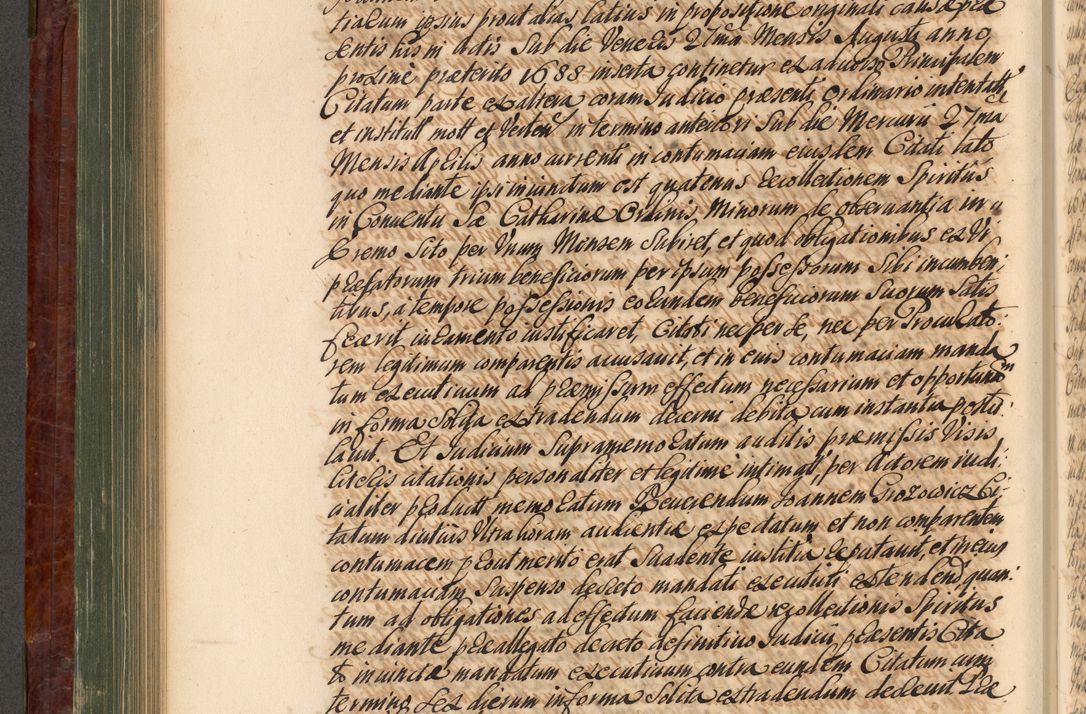 tialium ipsius prout alias latius in propositione originali causæ præ
sentis his in actis Sub die Veneris 27ma Mensis Augusti anno
proxime præterito 1688 inserta continetur ex adverso Principalem
Citatum parte ex altera coram Judicio præsenti Ordinario intentatæ
et institutt mott et Vertent in termino anteriori Sub die Mercurii 27ma
Mensis Aprilis anno currenti in contumaciam eiusdem Citati lato
quo mediante ipsi iniunctum est quatenus Recollectionem Spiritus
in Conventu Sæ Catharinæ Ordinis Minorum de observantia in
Eremo Sito per Unum Mensem Subiret, et quod obligationibus ex Vi
præfatorum trium beneficiorum per ipsum possessorum Sibi incumben:
tibus, a tempore possessionis eorundem beneficiorum Suorum Satis
fecerit, iuramento iustificaret, Citati nec per se, nec per Procurato:
rem legitimum comparentis accusavit, et in eius contumaciam manda
tum executivum ad præmissum effectum necessarium et opportunum
in forma solita extradendum decerni debita cum instantia postu:
lavit. Et Judicium Supramemoratum auditis præmissis Visis
litteris citationis personaliter et legitime intimatt, per Actorem iudi:
cialiter productt memoratum Reverendum Joannem Grozowicz Ci:
tatum diutius Ultra horam audientiæ expectatum et non comparentem
contumacem prout merito erat Suadente iustitia reputavit, et in eius
contumaciam Suspenso decreto mandati executivi extendend quan:
tum ad obligationes ad effectum faciendæ recollectionis Spiritus
mediante præallegato decreto definitivo Judicii præsentis Citta
to iniunctæ mandatum executivum contra eundem Citatum cum
termino Sex dierum in forma Solita extradendum decrevit Præ